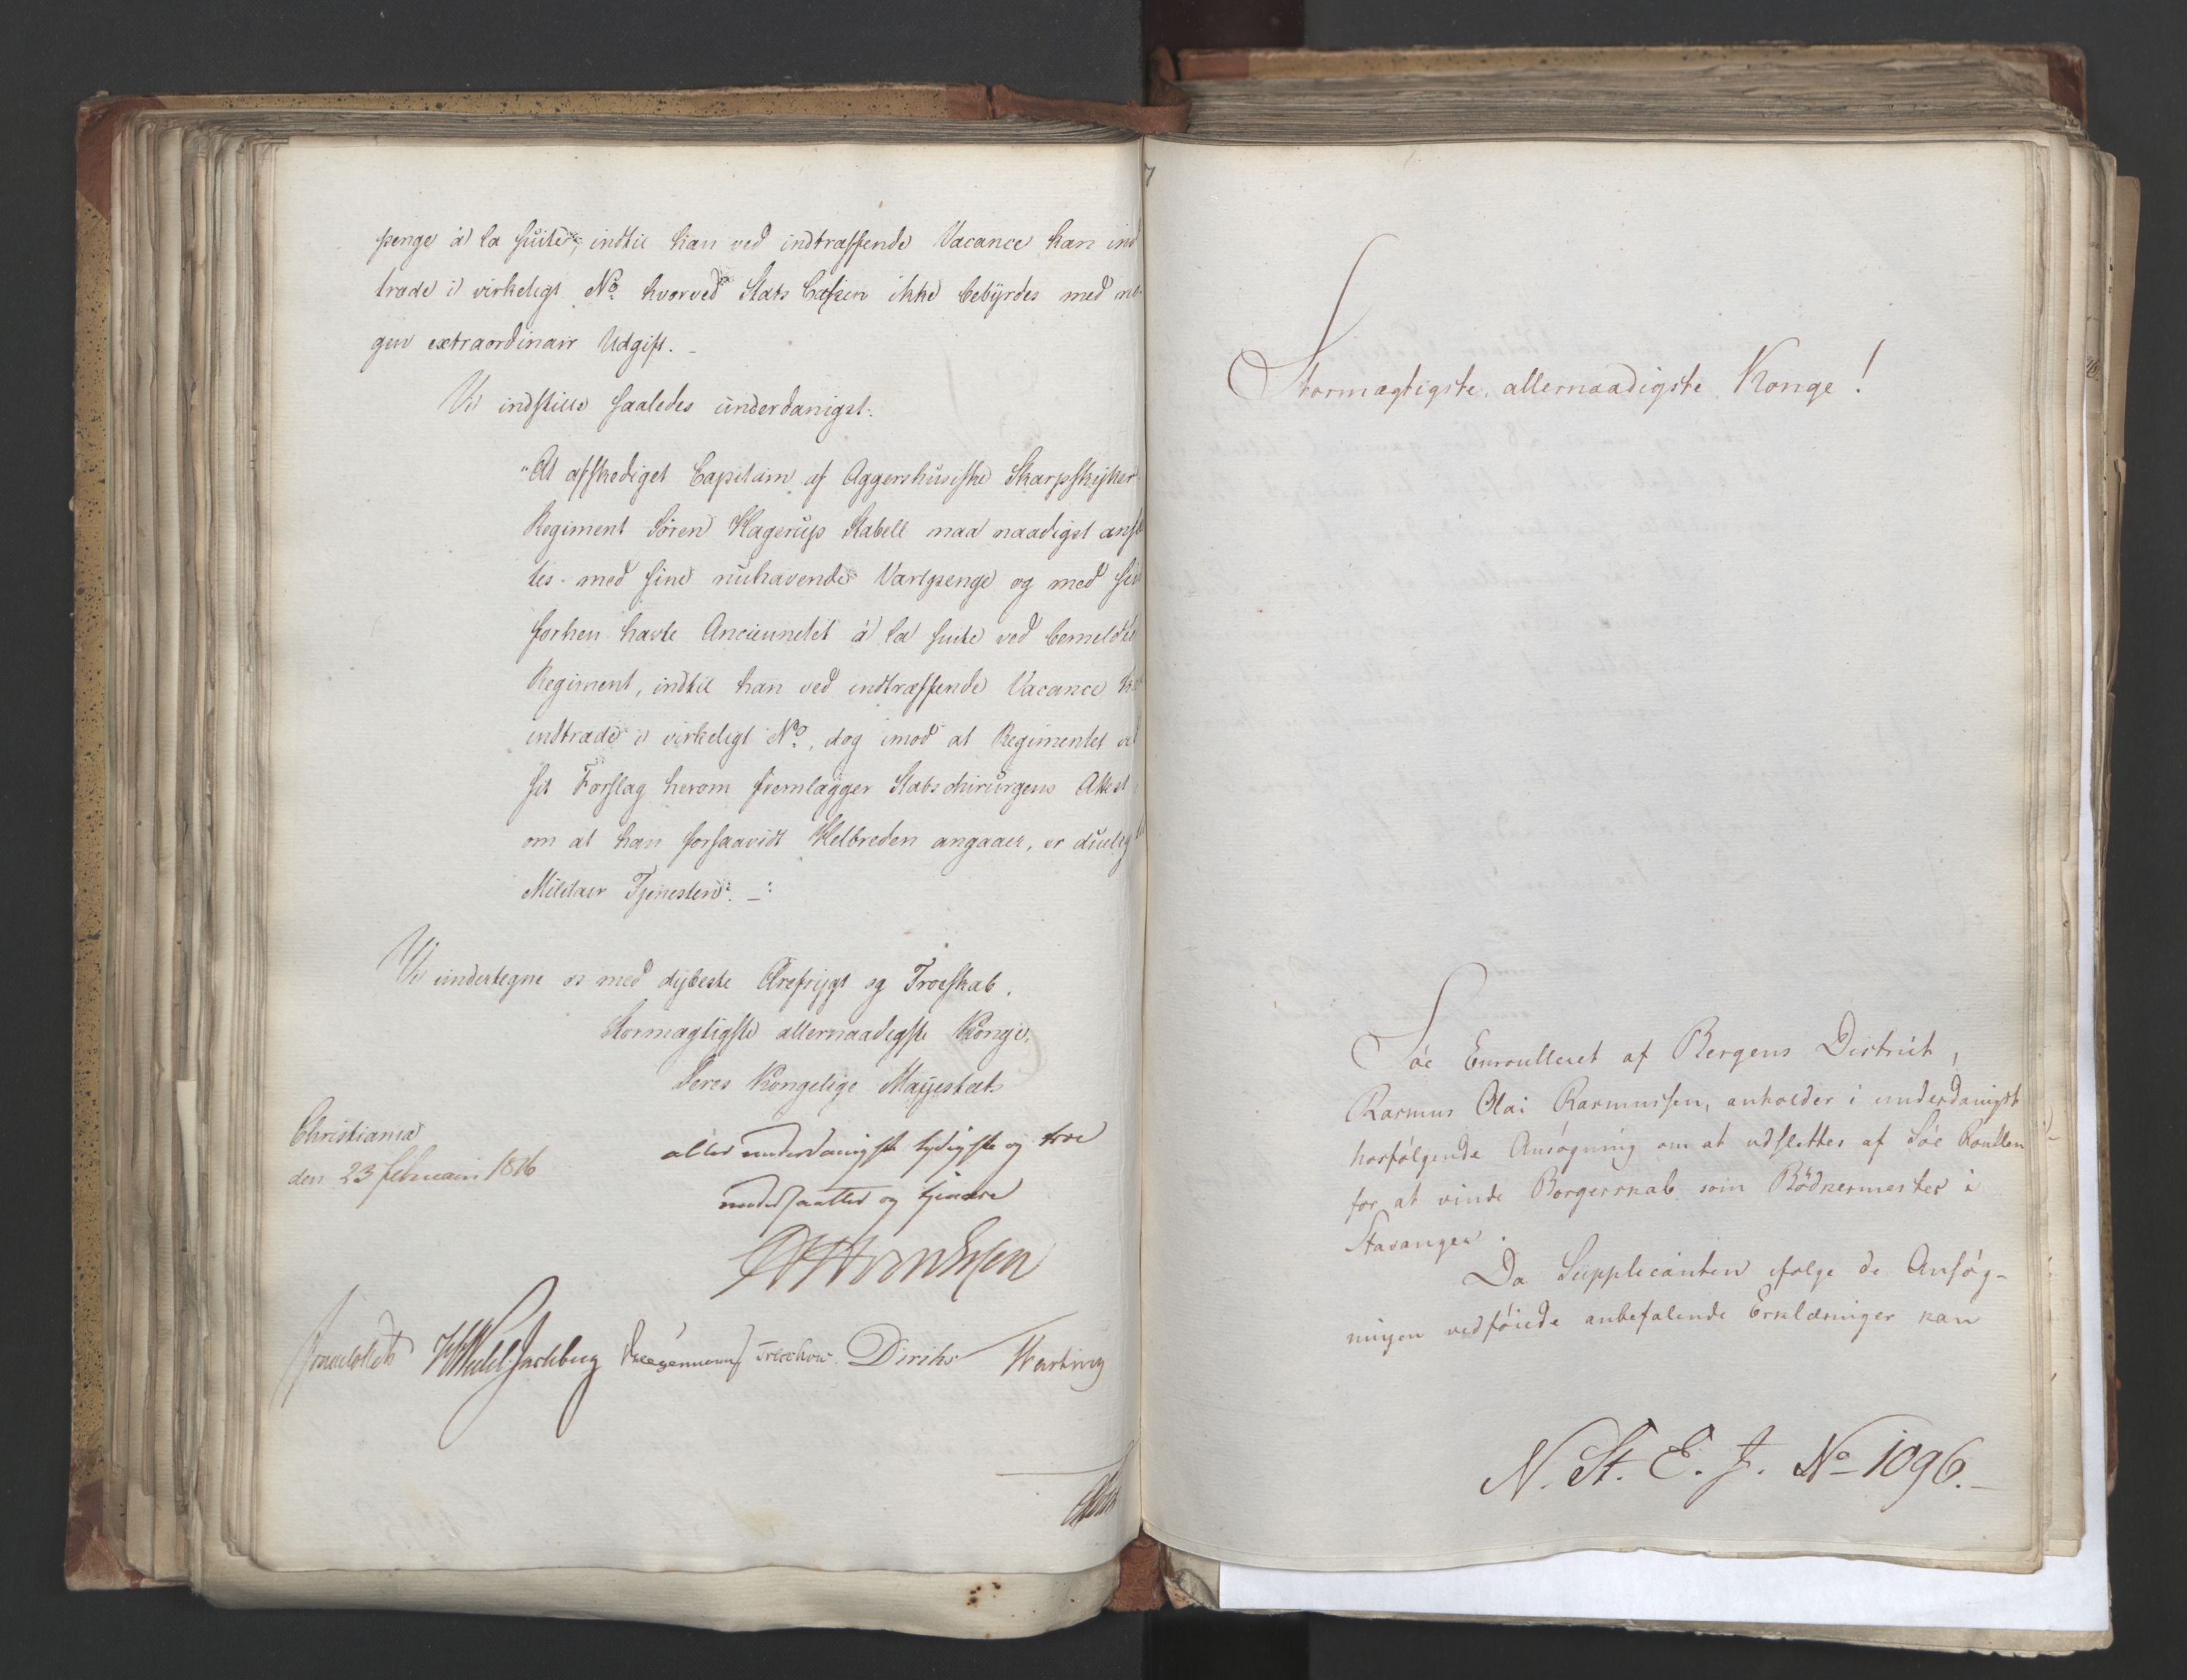 penge à la suite, indtil han ved indtræffende Vacance kan ind
træde i virkeligt No. hvorved Stats Cassen ikke bebyrdes med no-
gen extraordinair Udgift. -
Vi indstille saaledes underdanigst:
"At afskediget Capitain af Aggershuusiske Skarpskytter
Regiment Sören Hagerup Stabell maa naadigst anst
tes med sine nuhavende Vartpenge og med sin
forhen havte Anciennetet à la suite ved bemeldte
Regiment, indtil han ved indtræffende Vacance k
indtræde i virkeligt No., dog imod at Regimentet ved
sit Forslag herom fremlægger Stabschirurgens Attest
om at han forsaavidt Helbreden angaaer, er duelig
Militair Tjenesten". -:
Vi undertegne os med dybeste Ærefrygt og Troeskab.
Stormægtigste allernaadigste Konge,
Deres Kongelige Majestæts
Christiania
den 23 februari 1816
allerunderdanigste lydigste og troe
undersaatter og tjenere
Sommerhielm HWedelJarlsberg Krieger Treschow Diriks Hartwig
Stormægtigste, allernaadigste Konge!
Söe Enroulleret af Bergens District,
Rasmus Olai Rasmussen, anholder i underdanigst
hosfölgende Ansögning om at udslettes af Söe Roullen
for at vinde Borgerskab som Bödkermester i
Stavanger.
Da Supplicanten ifølge de Ansög-
ningen vedföiede anbefalende Erklæringer kan
N. St. E. J. No 1096. -